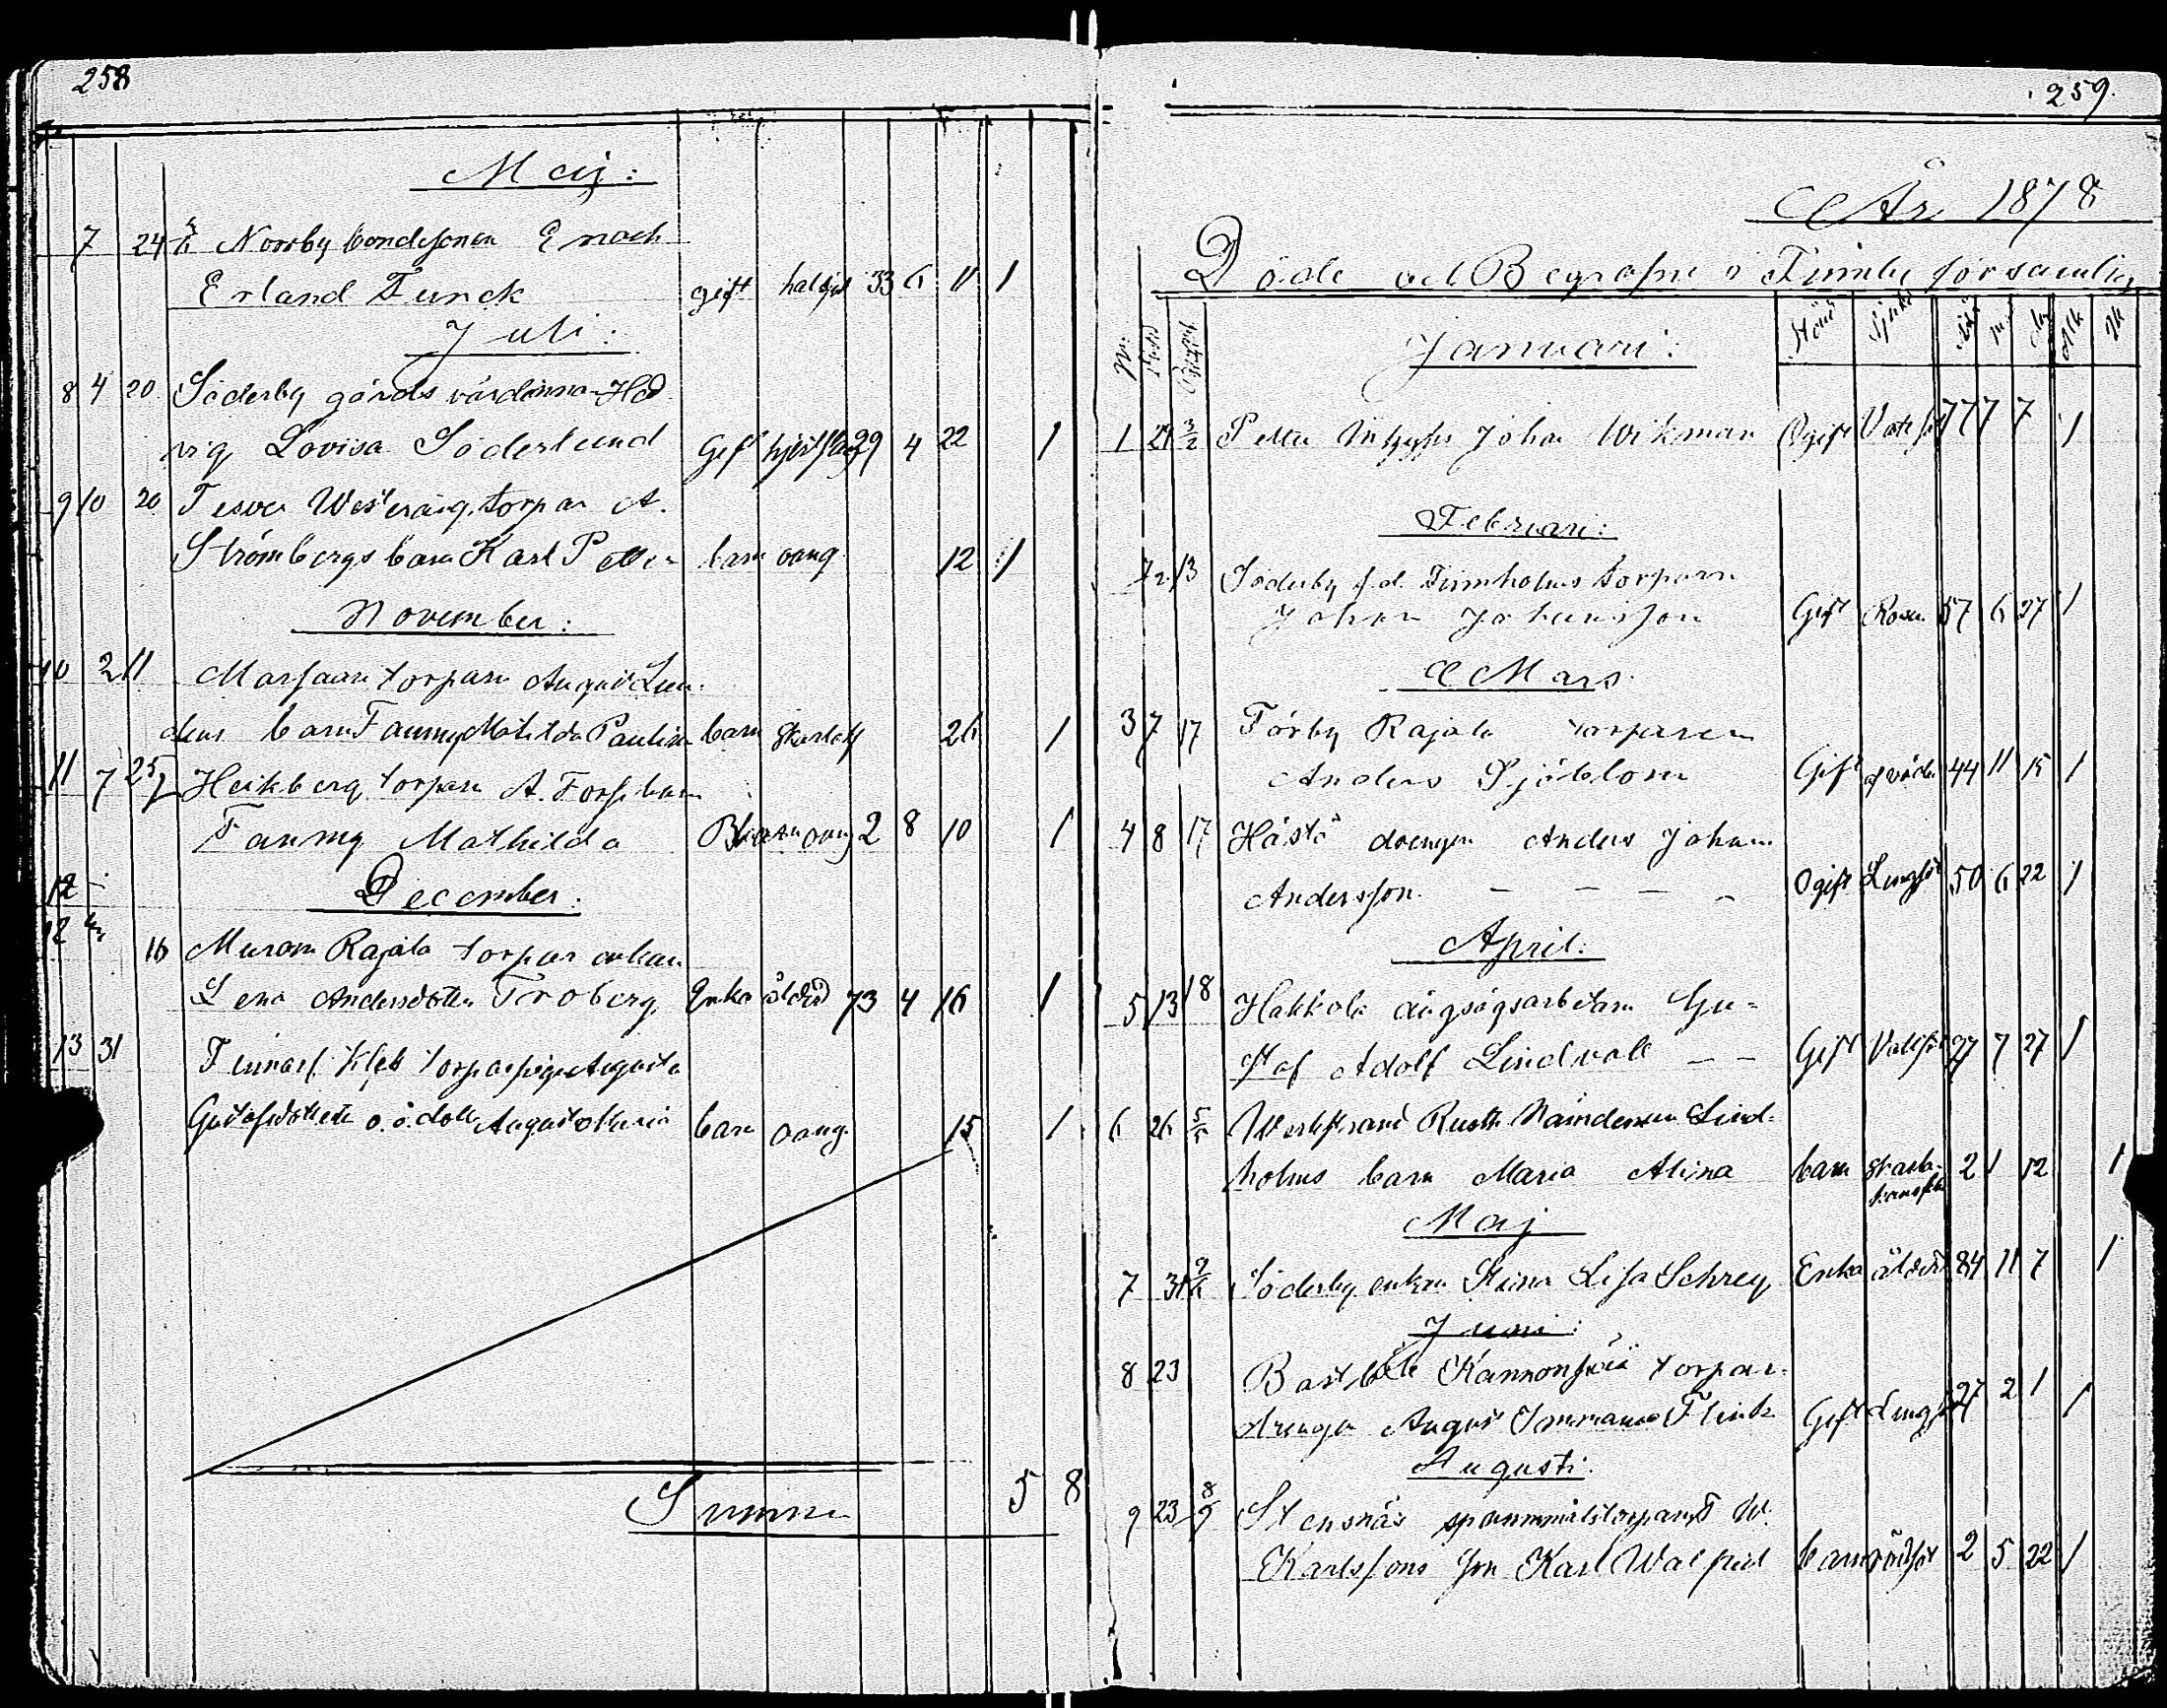 258
Maj:
7 24 Norrby bondesonen Enoch
Erland Funck gift 33 6 11 1
Juli:
8 4 20 Söderby gårds värdinnan Hed
vig Lovisa Söderlund Gift 29 4 22 1
9 10 20 Tesvei Westeräng torpar A.
Strömbergs barn Karl Petter barn oang. 12 1
November:
10 2 11 torparn August Lin-
dens barn Fanny Mathilda Paulina barn 26 1
11 7 25 Heikberg torparn A. Forss barn
Fanny Mathilda Barn oang 2 8 10 1
12
December:
12 16 Rajala torpar enkan
Lena Andersdotter Froberg, Enka ålderd 73 4 16 1
13 31 torparpigan Augusta
Gustafsdotters o.ä. dotter Augusta Maria barn oang. 15 1
Summa 5 8
259.
År 1878
Döde och Begrafne i Finnby församling
No. Stånd Sjukd. år m. dag Mk Qk
Januari:
1 21 3/2 Petter Johan Wikman Ogift 77 7 7 1
Februari:
2 13 Söderby f.d. Finnholms torparn
Johan Johansson Gift Rosen 57 6 27 1
Mars
3 7 17 Förby Rajala torparen
Anders Sjöblom Gift 44 11 15 1
4 8 17 Hästö drengen Anders Johan
Andersson. — — — — Ogift Lungsot 50 6 22 1
April:
5 13 18 Hakkala ångsågsarbetarn Gu=
staf Adolf Lindvall — — Gift 27 7 27 1
6 26 5/5 Westerstrand Rusth. Nämndeman Lind-
holms barn Maria Alina barn 2 1 12 1
Maj
7 31 9/6 Söderby enkan Stina Lisa Schrey Enka ålderd 84 11 7 1
Juni:
8 23 torpar-
drengen August Immanuel Flink Gift 27 2 1 1
Augusti:
9 23 8/9 Stensnäs W.
Karlssons son Karl Walfrid barn rödsot 2 5 22 1